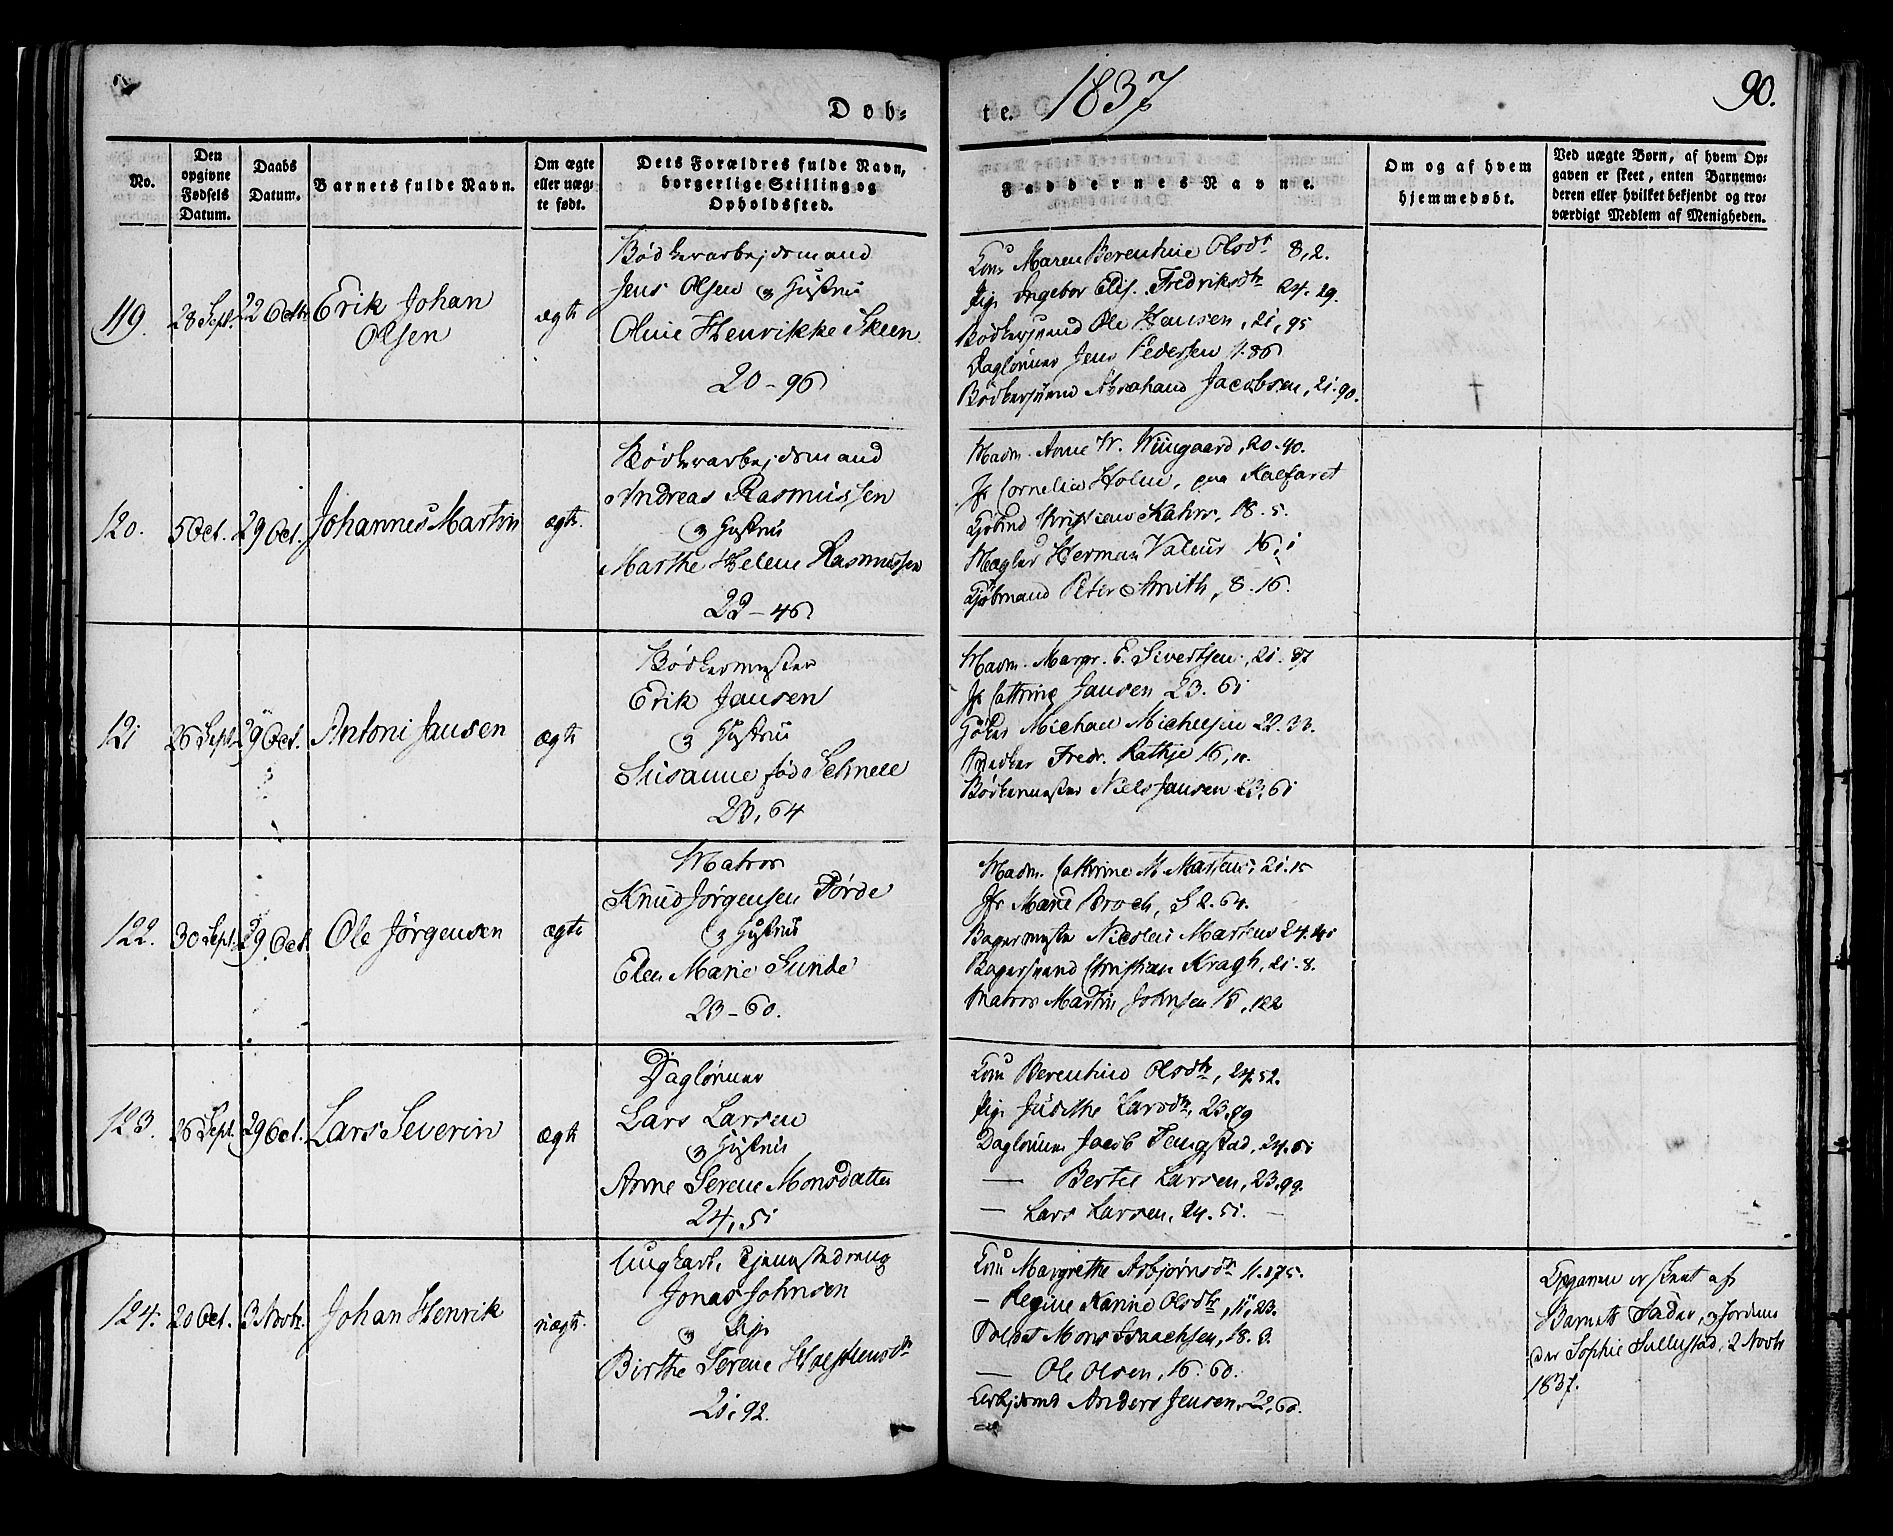 Døb-
te. 1837
90.
No.
Den opgivne Fødsels Datum.
Daabs Datum.
Barnets fulde Navn.
Om ægte eller uægte født.
Dets Forældres fulde Navn, borgerlige Stilling og Opholdssted.
Faddernes Navne.
Om og af hvem hjemmedøbt.
Ved uægte Børn, af hvem Opgaven er skeet, enten Barnemoderen eller hvilket bekjendt og troværdigt Medlem af Menigheden.
119.
28 Sept.
22 Octr
Erik Johan
Olsen
ægte
Bødkerarbejdsmand
Jens Olsen og Hustrue
Oline Henrikke Skeen
20-96
Kone Maren Berentine Olsdr 8,2.
Pige Ingebor Elis. Fredriksdtr 24.29.
Bødkersvend Ole Hansen, 21,95
Daglønner Jens Pedersen 1.86
Bødkersvend Abraham Jacobsen, 21.90.
120.
5 Oct.
29 Oct.
Johannes Martin
ægte.
Bødkerarbejdsmand
Andreas Rasmussen
og Hustrue
Marthe Helene Rasmussen
22-46
Madm. Anne W. Wiingaard, 20.40.
Jfr Cornelia Holm, paa Kalfaret
Kjøbmd Kahrs, 18.5.
Mægler Herman Valeur 16,1
Kjøbmand Peter Smith, 8.16.
121
26 Sept.
29 Oct.
Antoni Jansen
ægte
Bødkermester
Erik Jansen
og Hustrue
Susanne fød Schnell
23,64
Madm. Margr. E. Sivertsen, 21.87
Jfr Cathrine Jansen 23.61
Michael Michelsen 22.33.
Fredr. Rathje 16,
Bødkermester Niels Jansen 23,61
122.
30 Sept.
29 Oct.
Ole Jørgensen
ægte
Matros
Knud Jørgensen Förde
og Hustrue
Elen Marie Sunde
23-60.
Madm. Cathrine M. Martens, 21.15
Jfr Marie Broch, 52.64.
Bagermester Nicolai Martens 24.
Bagersvend Christian Kragh, 21.8.
Matros Martin Johnsen 16,122
123.
26 Sept.
29 Oct.
Lars Severin
ægte
Daglønner
Lars Larsen
og Hustrue
Anne Serene Monsdatter
24,51
Kone Berentine Olsdtr, 24.52.
Pige Judithe Larsdtr, 23.99
Dagløner Jacob Tengstad, 24.51
— Bertel Larsen, 23.99.
— Lars Larsen, 24.51. —
124.
20 Oct.
3 Novbr.
Johan Henrik
uægte.
Ungkarl, Tjenestedreng
Jonas Johnsen
og
Pige
Birthe Serene
21,92.
Kone Margrethe Asbjørnsdr 11.175.
— Regine Karine Olsdtr, 11,23.
Mons Isaachsen, 18.3.
— Ole Olsen, 16.60.
Arbejdsmd Anders Jensen, 22,60.
Opgaven er skeet af
Barnets Fader, og Jordemo
der Sophie Sellestad, 2 Novbr
1837.